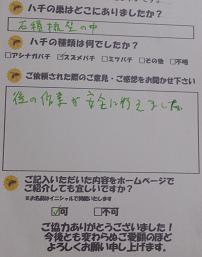 ハチの巣はどこにありましたか？
石積擁壁の中
ハチの種類は何でしたか？
□アシナガバチ ☑スズメバチ □ミツバチ □その他 □不明
ご依頼された際のご意見・ご感想をお聞かせ下さい
後の作業が安全に行えました
ご記入いただいた内容をホームページで
ご紹介しても宜しいですか？
※お名前はイニシャルで掲載いたします
☑可 □不可
ご協力ありがとうございました！
今後とも変わらぬご愛顧のほど
よろしくお願い申し上げます。